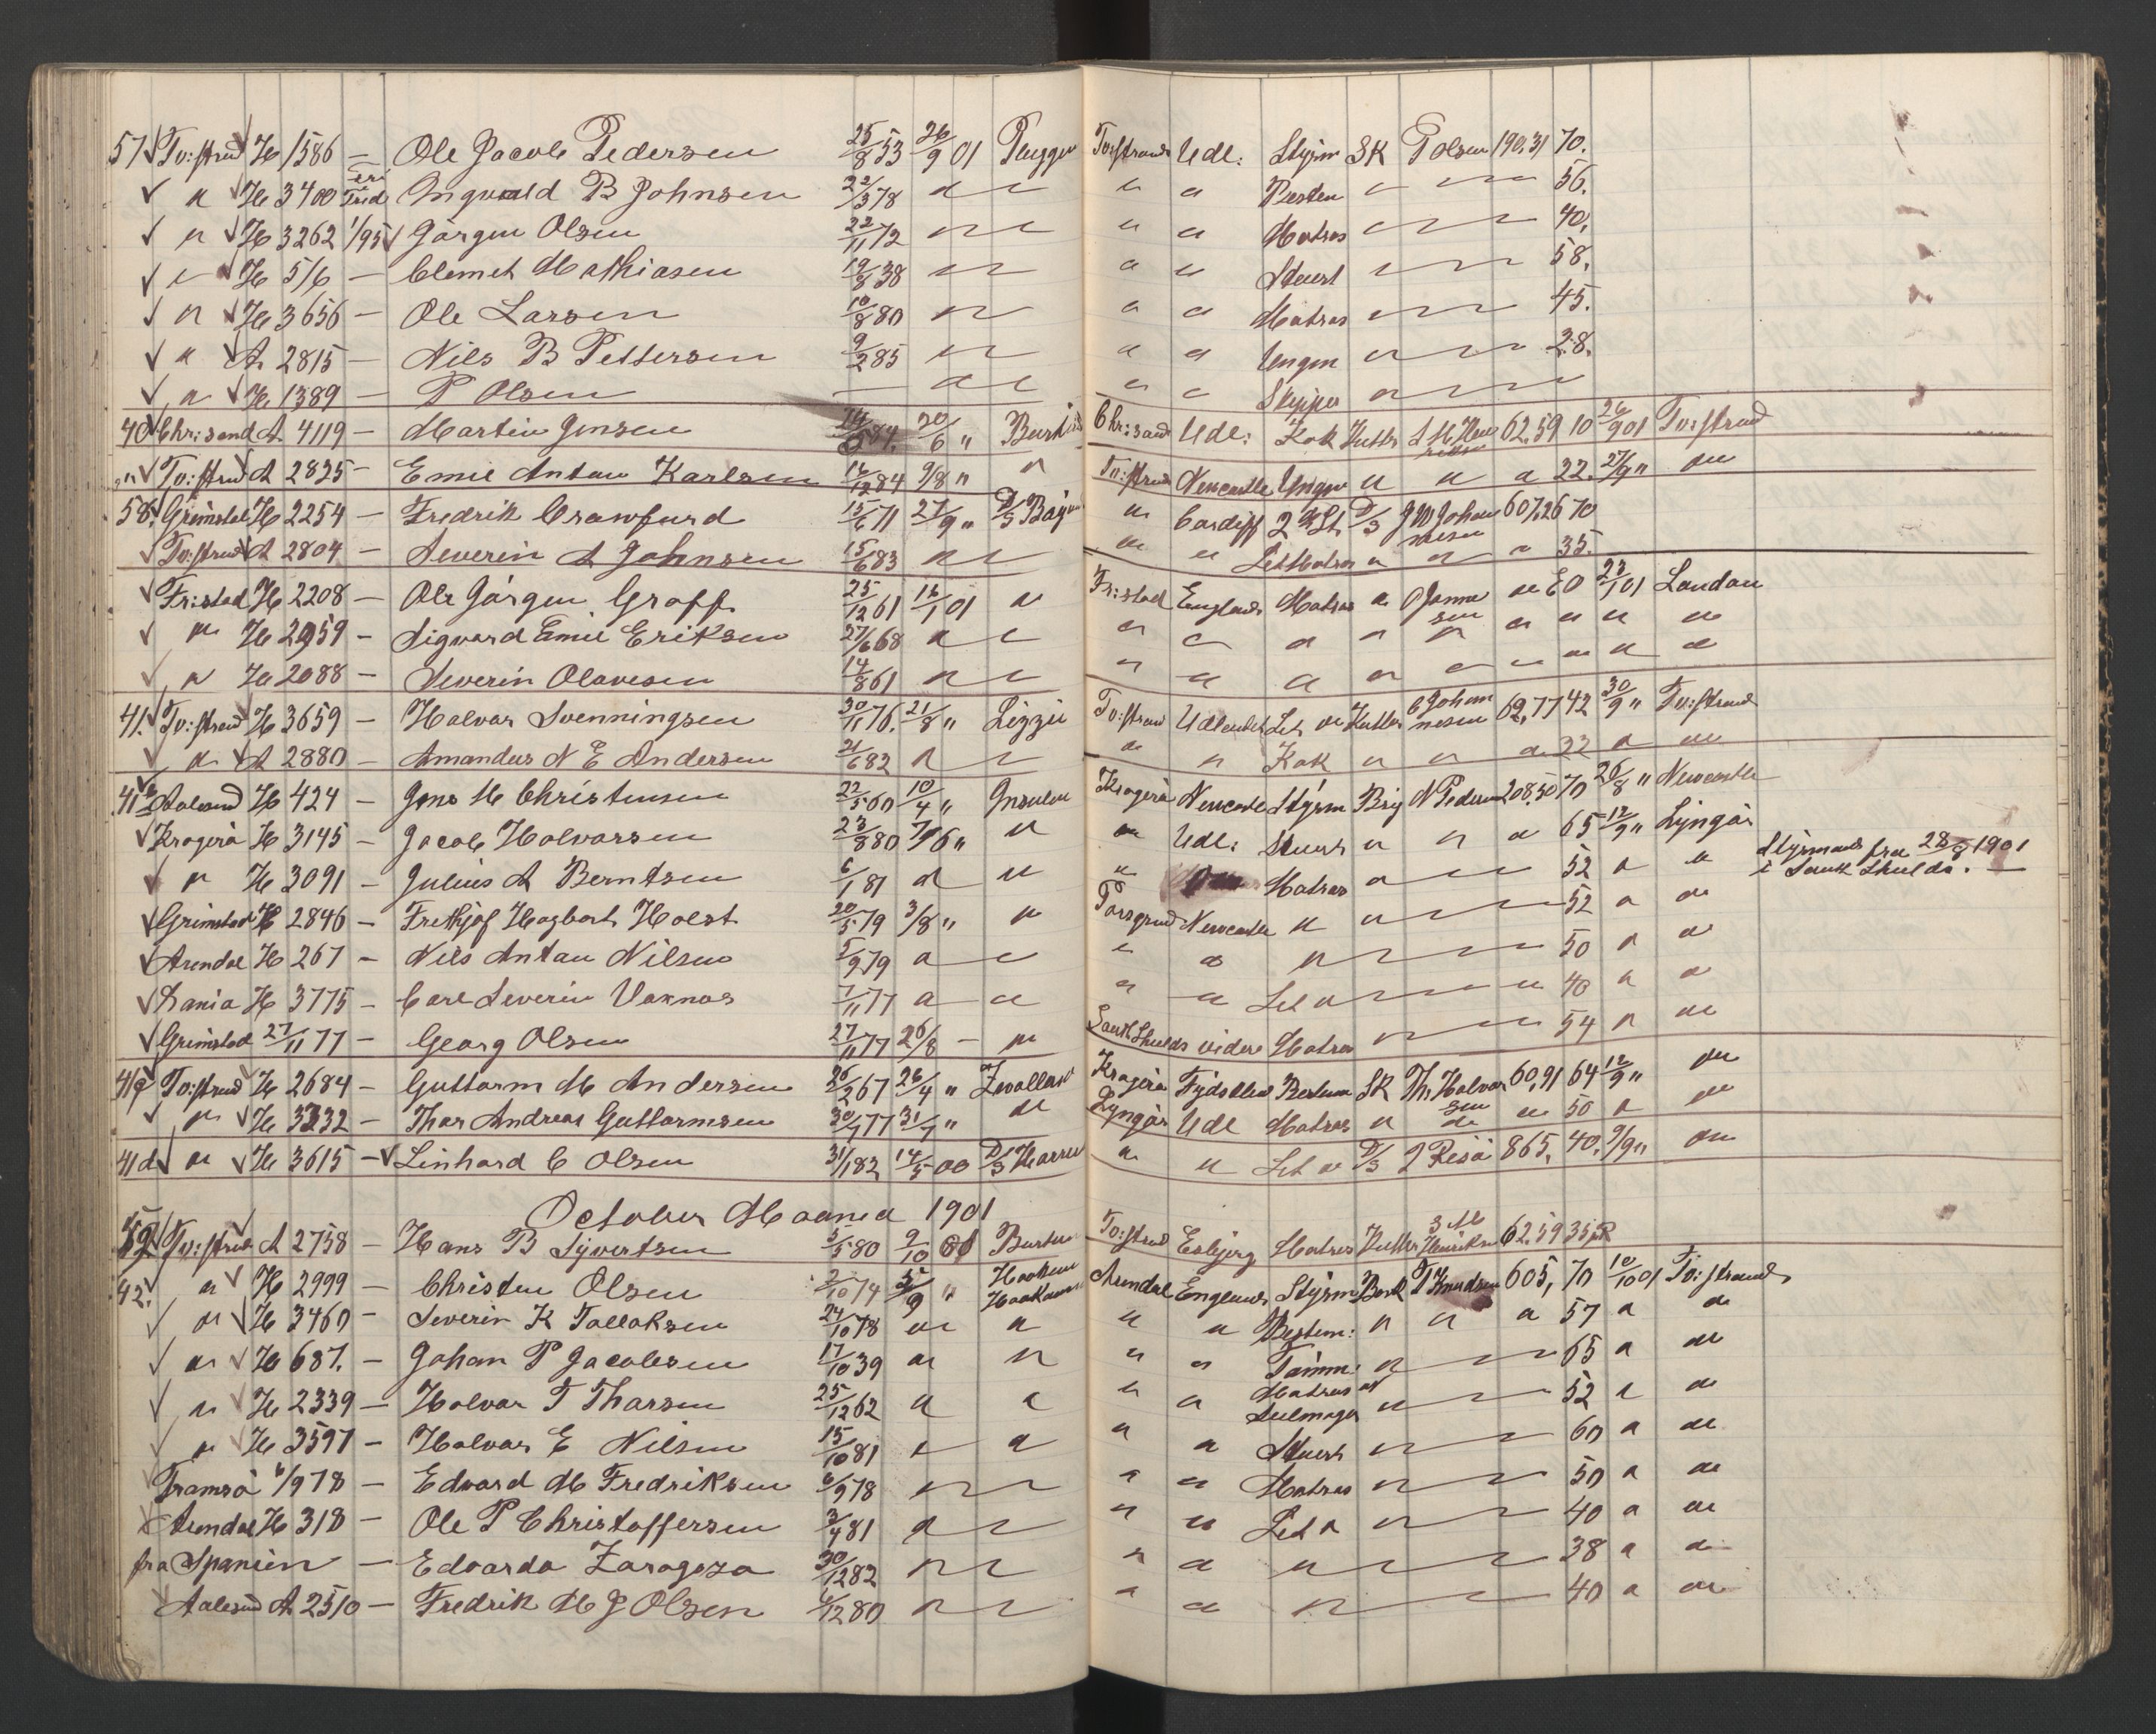 57 Tv:strand H 1586 — Ole Jacob Pedersen 25/8 53 26/9 01 Tv:strand Udl: Styrm SK P Olsen 190,31 70.
" H 3400 Ingvald B Johnsen 22/3 78 " " " " Besten " " 56.
" H 3262 1/95 Jørgen Olsen 22/11 72 " " " " Matros " " 40,
" H 516 — Clemet Mathiasen 19/8 38 " " " " Stuert " " 58,
" H 3656 — Ole Larsen 10/8 80 " " " " Matros " " 45.
" A 2815 — Nils B Pettersen 9/2 85 " " " " Ungm " " 28.
" H 1389 — P Olsen — " " " " Skipper " "
40 Chr:sand A 4119 — Martin Jensen 20/6 " Chr:sand Udl: Kok Kutter 62,59 10 26/9 01 Tv:strand
" Tv:strand A 2835 — Emil Anton Karlsen 16/12 84 9/8 " " Tv:strand Newcastle Ungm " " " 22. 27/9 " "
58. Grimstad H 2254 — Fredrik Crawfurd 15/6 71 27/9 " D/S " Cardiff 2 St. D/S J M Johannesen 607,26 70
Tv:strand A 2804 — Severin A Johnsen 15/6 83 " " " " Let Matros " " " 35.
Fr:stad H 2208 — Ole Jørgen Groff 25/12 61 16/1 01 " Fr:stad England Matros " " 60 23/1 01 London
" H 2959 — Sigvard Emil Eriksen 27/6 68 " " " " " " " " " " "
" H 2088 — Severin Olavesen 14/8 61 " " " " " " " " " " "
41. Tv:strand H 3659 — Halvor Svenningsen 30/11 76. 21/8 " Lizzie Tv:strand Udlandet Let " Kutter C Johannesen 62,77 42 30/9 " Tv:strand
" A 2880 — Amandus N E Andersen 21/6 82 " " " " Kok " " " 22 " "
41b Aalesund H 424 — Jens M Christensen 22/5 60 10/4 " Insulan Kragerø Newcastle Styrm Brig N Pedersen 208,50 70 26/8 " Newcastle
Kragerø H 3145 — Jacob Halvorsen 23/8 80 7/6 " " " Udl: Stuert " " " 65 12/9 " Lyngør
" H 3091 — Julius A Berntsen 6/1 81 " " " Matros " " 52 " " Styrmand fra 28/8 1901
i South Shields. —
Grimstad H 2846 — Frithjof Hagbart Holst 20/5 79 3/8 " " Porsgrund Newcastle " " " 52 " "
Arendal H 267 — Nils Anton Nilsen 5/9 79 " " " " " " 50 " "
H 3775 — Carl Severin Vaknas 7/11 77 " " " " Let " " " 40 " "
Grimstad 27/11 77 — Georg Olsen 27/11 77 26/8 — " South Shields videre Matros " " 54 " "
41c Tv:strand H 2684 — Guttorm M Andersen 26/2 67 26/4 " Kragerø Bestem SK Th: Halvorsen 60,91 64 12/9 " "
" H 3232 — Thor Andreas Guttormsen 30/1 77 31/7 " " Lyngør Udl Matros " " " 50 " "
41d " H 3615 — Linhard C Olsen 31/1 82 14/5 00 D/S " " Let " D/S 865, 40. 9/9 " "
October Maaned 1901
59 Tv:strand A 2758 — Hans B Syvertsen 5/5 80 9/10 01 Tv:strand Esbjerg Matros Kutter Henriksen 62,59 35
42. " H 2999 — Christen Olsen 2/10 74 " Arendal England Styrm Bark T Knudsen 605, 70 10/10 01 Tv:strand
" H 3460 — Severin K Tallaksen 24/10 78 " " " " Bestem: " " " 57 " "
" H 687. — Johan P Jacobsen 17/10 39 " " " " Tømm: " " 65 " "
" H 2339 — Halvor T Thorsen 25/12 62 " " " " Matros og Seilmager " " 52 " "
" H 3597 — Halvor E Nilsen 15/10 81 " " " " Stuert " " 60 " "
Tromsø 6/9 78 — Edvard M Fredriksen 6/9 78 " " " " Matros " " 50 " "
Arendal H 318 — Ole P Christoffersen 3/4 81 " " " " Let " " " 40 " "
fra Spanien — Edoardo Zaragoza 30/12 82 " " " " " " " 38 " "
Aalesund A 2510 — Fredrik M J Olsen 6/12 80 " " " " " " " 40 " "